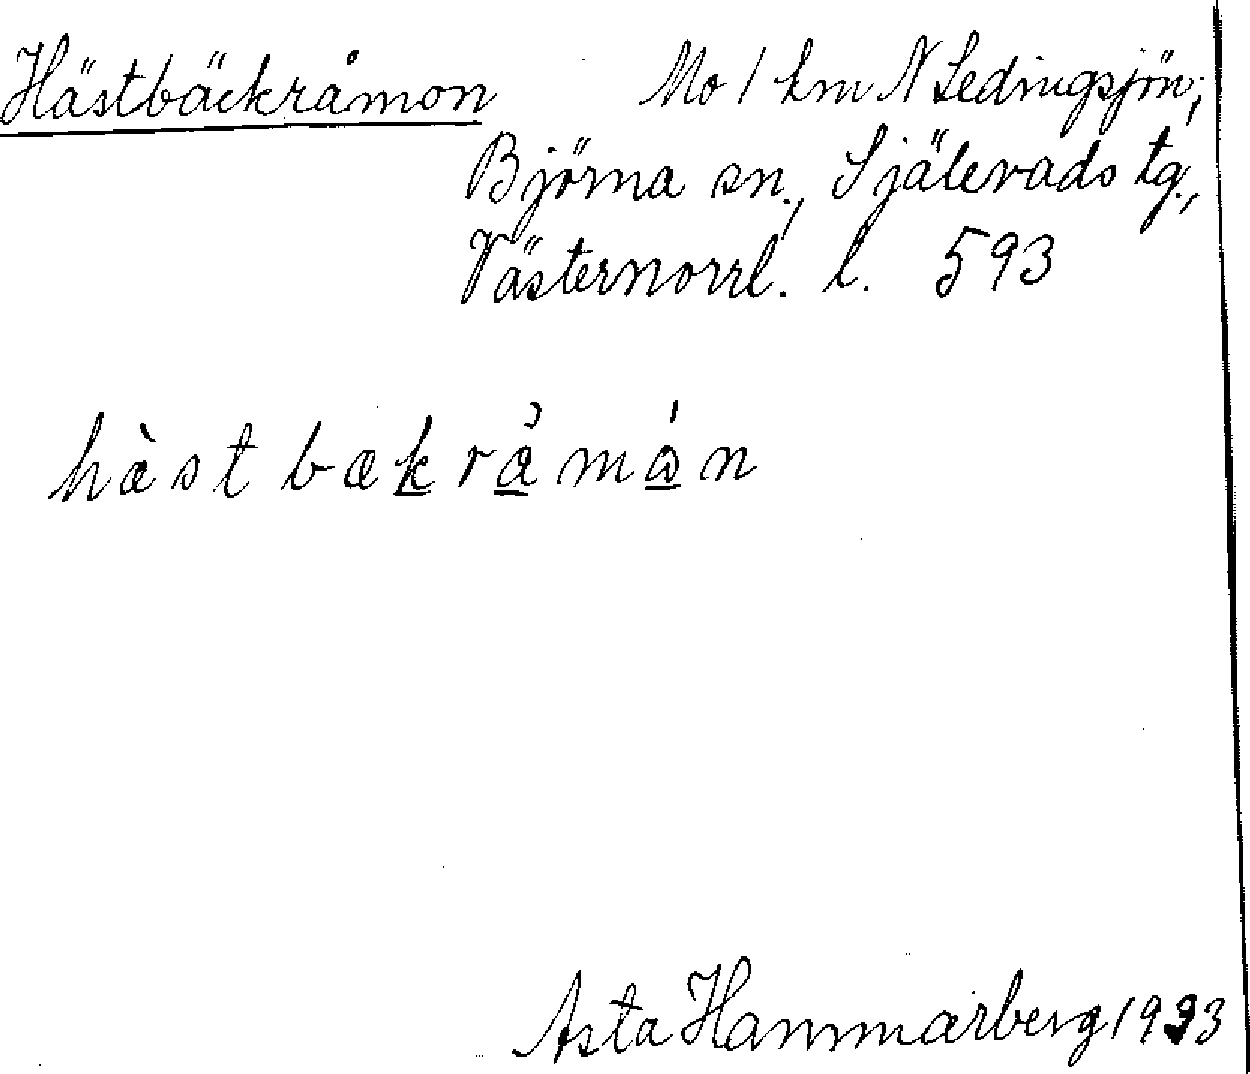 Hästbäckråmon Mo 1 km N Ledingsjön;
Björna sn., Själevads tg.,
Västernorrl. l. 593
hæ̀st bæk̲rå̲mǻ̲n
Asta Hammarberg 1933